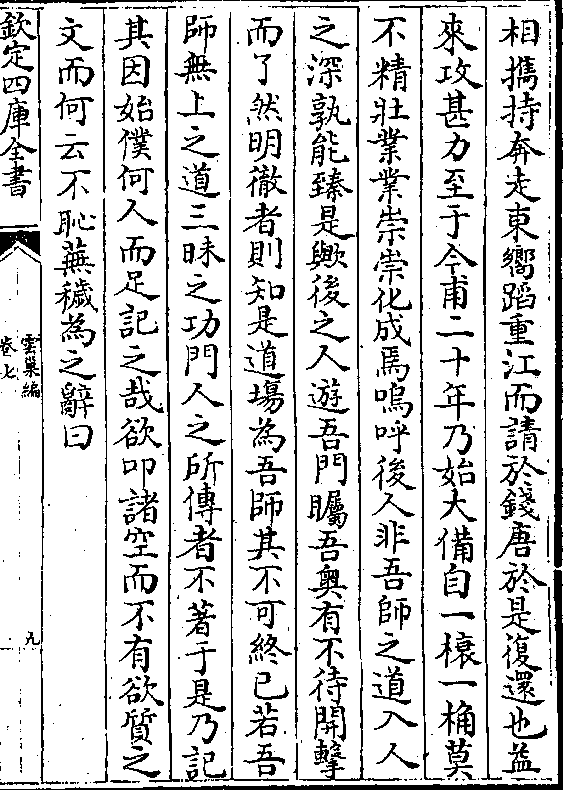 相擕持奔走東嚮蹈重江而請於錢唐於是復還也益
來攻甚力至于今甫二十年乃始大備自一榱一桷莫
不精壯業業崇崇化成焉嗚呼後人非吾師之道入人
之深孰能臻是歟後之人遊吾門矚吾奥有不待開擊
而了然明徹者則知是道場為吾師其不可終已若吾
師無上之道三昧之功門人之所傳者不著于是乃記
其因始僕何人而足記之哉欲叩諸空而不有欲質之
文而何云不恥蕪穢為之辭曰
欽定四庫全書
雲巢編
卷七
九